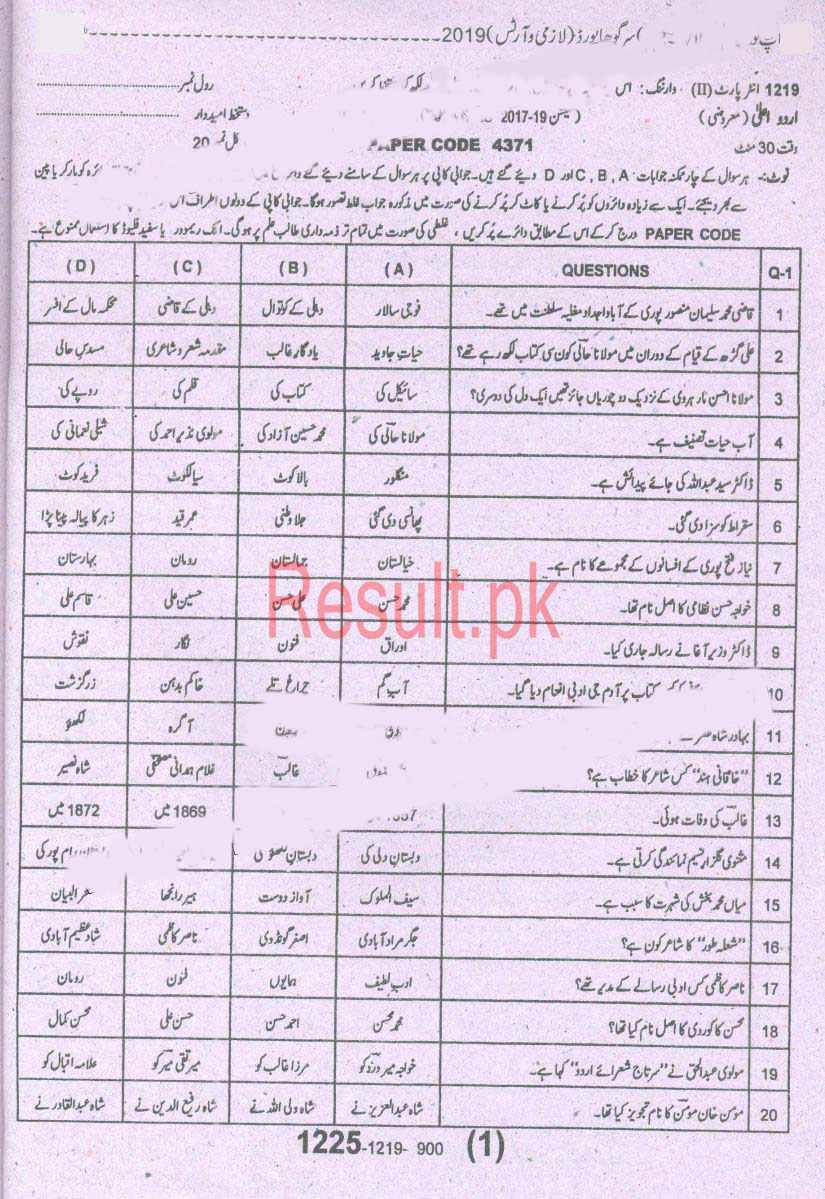 سرگودھا بورڈ (لازمی و آرٹس) 2019
1219 انٹر پارٹ (II) وارننگ: اس رول نمبر
اردو اعلیٰ (معروضی) (سیشن 19-2017 دستخط امیدوار
وقت 30 منٹ PAPER CODE 4371 کل نمبر 20
نوٹ:- ہر سوال کے چار ممکنہ جوابات A ، B ، C اور D دیئے گئے ہیں۔ جوابی کاپی پر ہر سوال کے سامنے دیئے گئے دائرہ کو مارکر یا پین
سے بھر دیجئے۔ ایک سے زیادہ دائروں کو پُر کرنے یا کاٹ کر پُر کرنے کی صورت میں مذکورہ جواب غلط تصور ہوگا۔ جوابی کاپی کے دونوں اطراف اس
PAPER CODE درج کر کے اس کے مطابق دائرے پُر کریں ، غلطی کی صورت میں تمام تر ذمہ داری طالب علم پر ہوگی۔ انک ریموور یا سفید فلیوڈ کا استعمال ممنوع ہے۔
Q-1 QUESTIONS (A) (B) (C) (D)
1 قاضی محمد سلیمان منصور پوری کے آباؤ اجداد مغلیہ سلطنت میں تھے۔ فوجی سالار دہلی کے کوتوال دہلی کے قاضی محکمہ مال کے افسر
2 علی گڑھ کے قیام کے دوران میں مولانا حالی کون سی کتاب لکھ رہے تھے؟ حیات جاوید یادگار غالب مقدمہ شعر و شاعری مسدس حالی
3 مولانا احسن مارہروی کے نزدیک دو چوریاں جائز تھیں ایک دل کی دوسری؟ سائیکل کی کتاب کی قلم کی روپے کی
4 آب حیات تصنیف ہے۔ مولانا حالی کی محمد حسین آزاد کی مولوی نذیر احمد کی شبلی نعمانی کی
5 ڈاکٹر سید عبداللہ کی جائے پیدائش ہے۔ منگلور بالا کوٹ سیالکوٹ فرید کوٹ
6 سقراط کو سزا دی گئی۔ پھانسی دی گئی جلا وطنی عمر قید زہر کا پیالہ پینا پڑا
7 نیاز فتح پوری کے افسانوں کے مجموعے کا نام ہے۔ خیالستان جمالستان رومان بہارستان
8 خواجہ حسن نظامی کا اصل نام تھا۔ محمد حسن علی حسن حسین علی قاسم علی
Result.pk
9 ڈاکٹر وزیر آغا نے رسالہ جاری کیا۔ اوراق فنون نگار نقوش
10 کتاب پر آدم جی ادبی انعام دیا گیا۔ آب گم چراغ تلے خاکم بدہن زرگزشت
11 بہادر شاہ ظفر آگرہ لکھنؤ
12 "خاقانی ہند" کس شاعر کا خطاب ہے؟ ذوق غالب غلام ہمدانی مصحفی شاہ نصیر
13 غالب کی وفات ہوئی۔ 1869 میں 1872 میں
14 مثنوی گلزار نسیم نمائندگی کرتی ہے۔ دبستان دلی کی دبستان لکھنؤ کی رام پور کی
15 میاں محمد بخش کی شہرت کا سبب ہے۔ سیف الملوک آواز دوست ہیر رانجھا سحر البیان
16 "شعلہ طور" کا شاعر کون ہے؟ جگر مراد آبادی اصغر گونڈوی ناصر کاظمی شاد عظیم آبادی
17 ناصر کاظمی کس ادبی رسالے کے مدیر تھے؟ ادب لطیف ہمایوں فنون رومان
18 محسن کاکوروی کا اصل نام کیا تھا؟ محمد محسن احمد حسن حسن علی محسن کمال
19 مولوی عبدالحق نے "سرتاج شعرائے اردو" کہا ہے۔ خواجہ میر درد کو مرزا غالب کو میر تقی میر کو علامہ اقبال کو
20 مومن خان مومن کا نام تجویز کیا تھا۔ شاہ عبدالعزیز نے شاہ ولی اللہ نے شاہ رفیع الدین نے شاہ عبدالقادر نے
1225-1219- 900 (1)